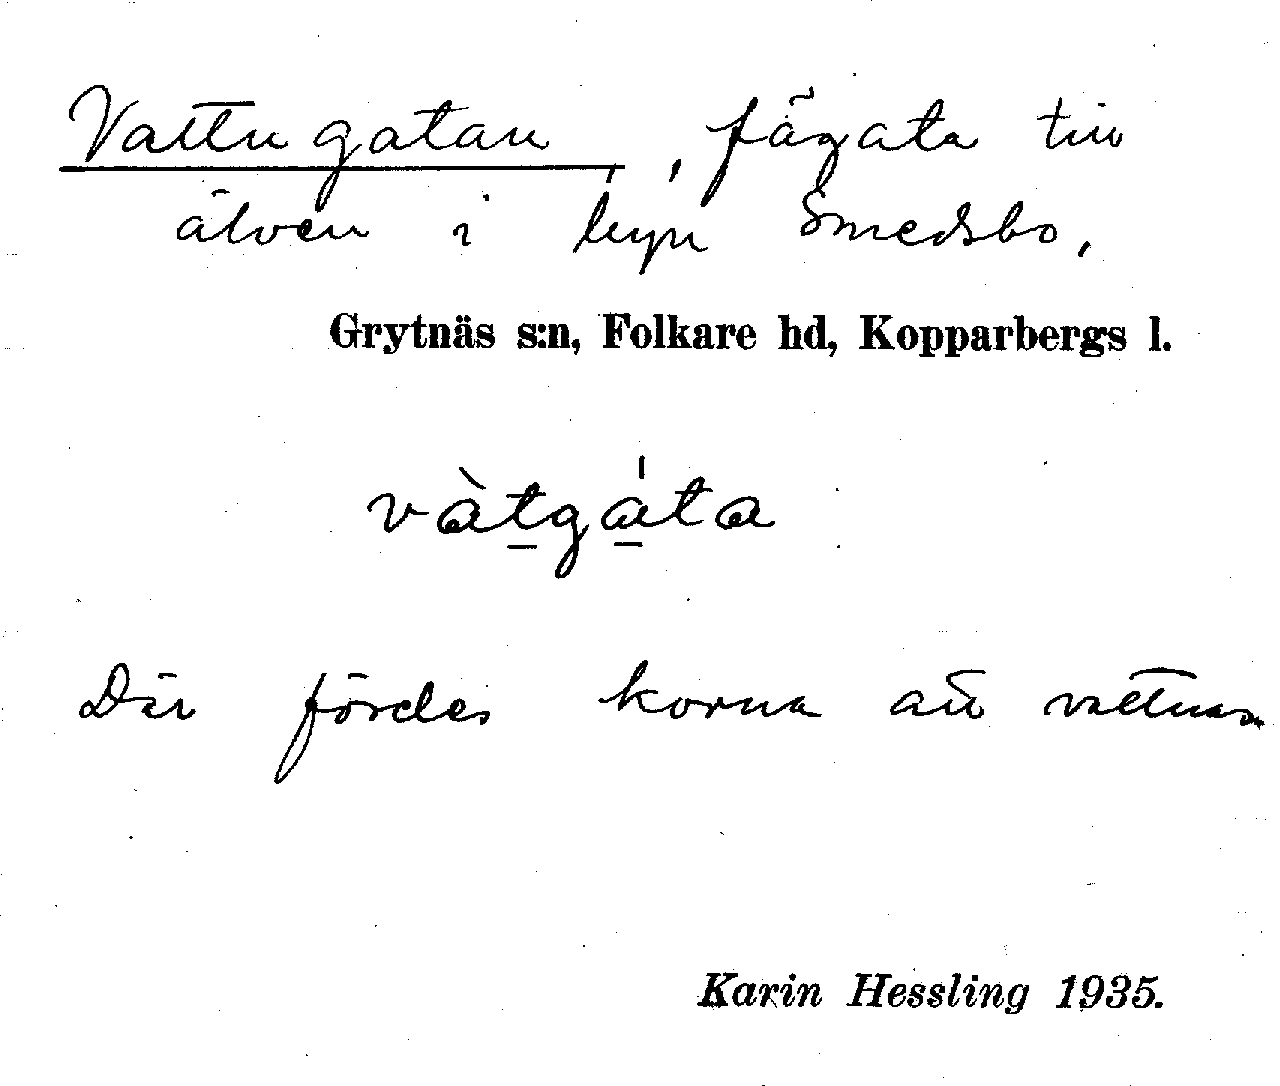 Vattugatan, fägata till
älven i byn Smedsbo.
Grytnäs s:n, Folkare hd, Kopparbergs l.
vàtgáta
Där fördes korna att vattnas.
Karin Hessling 1935.